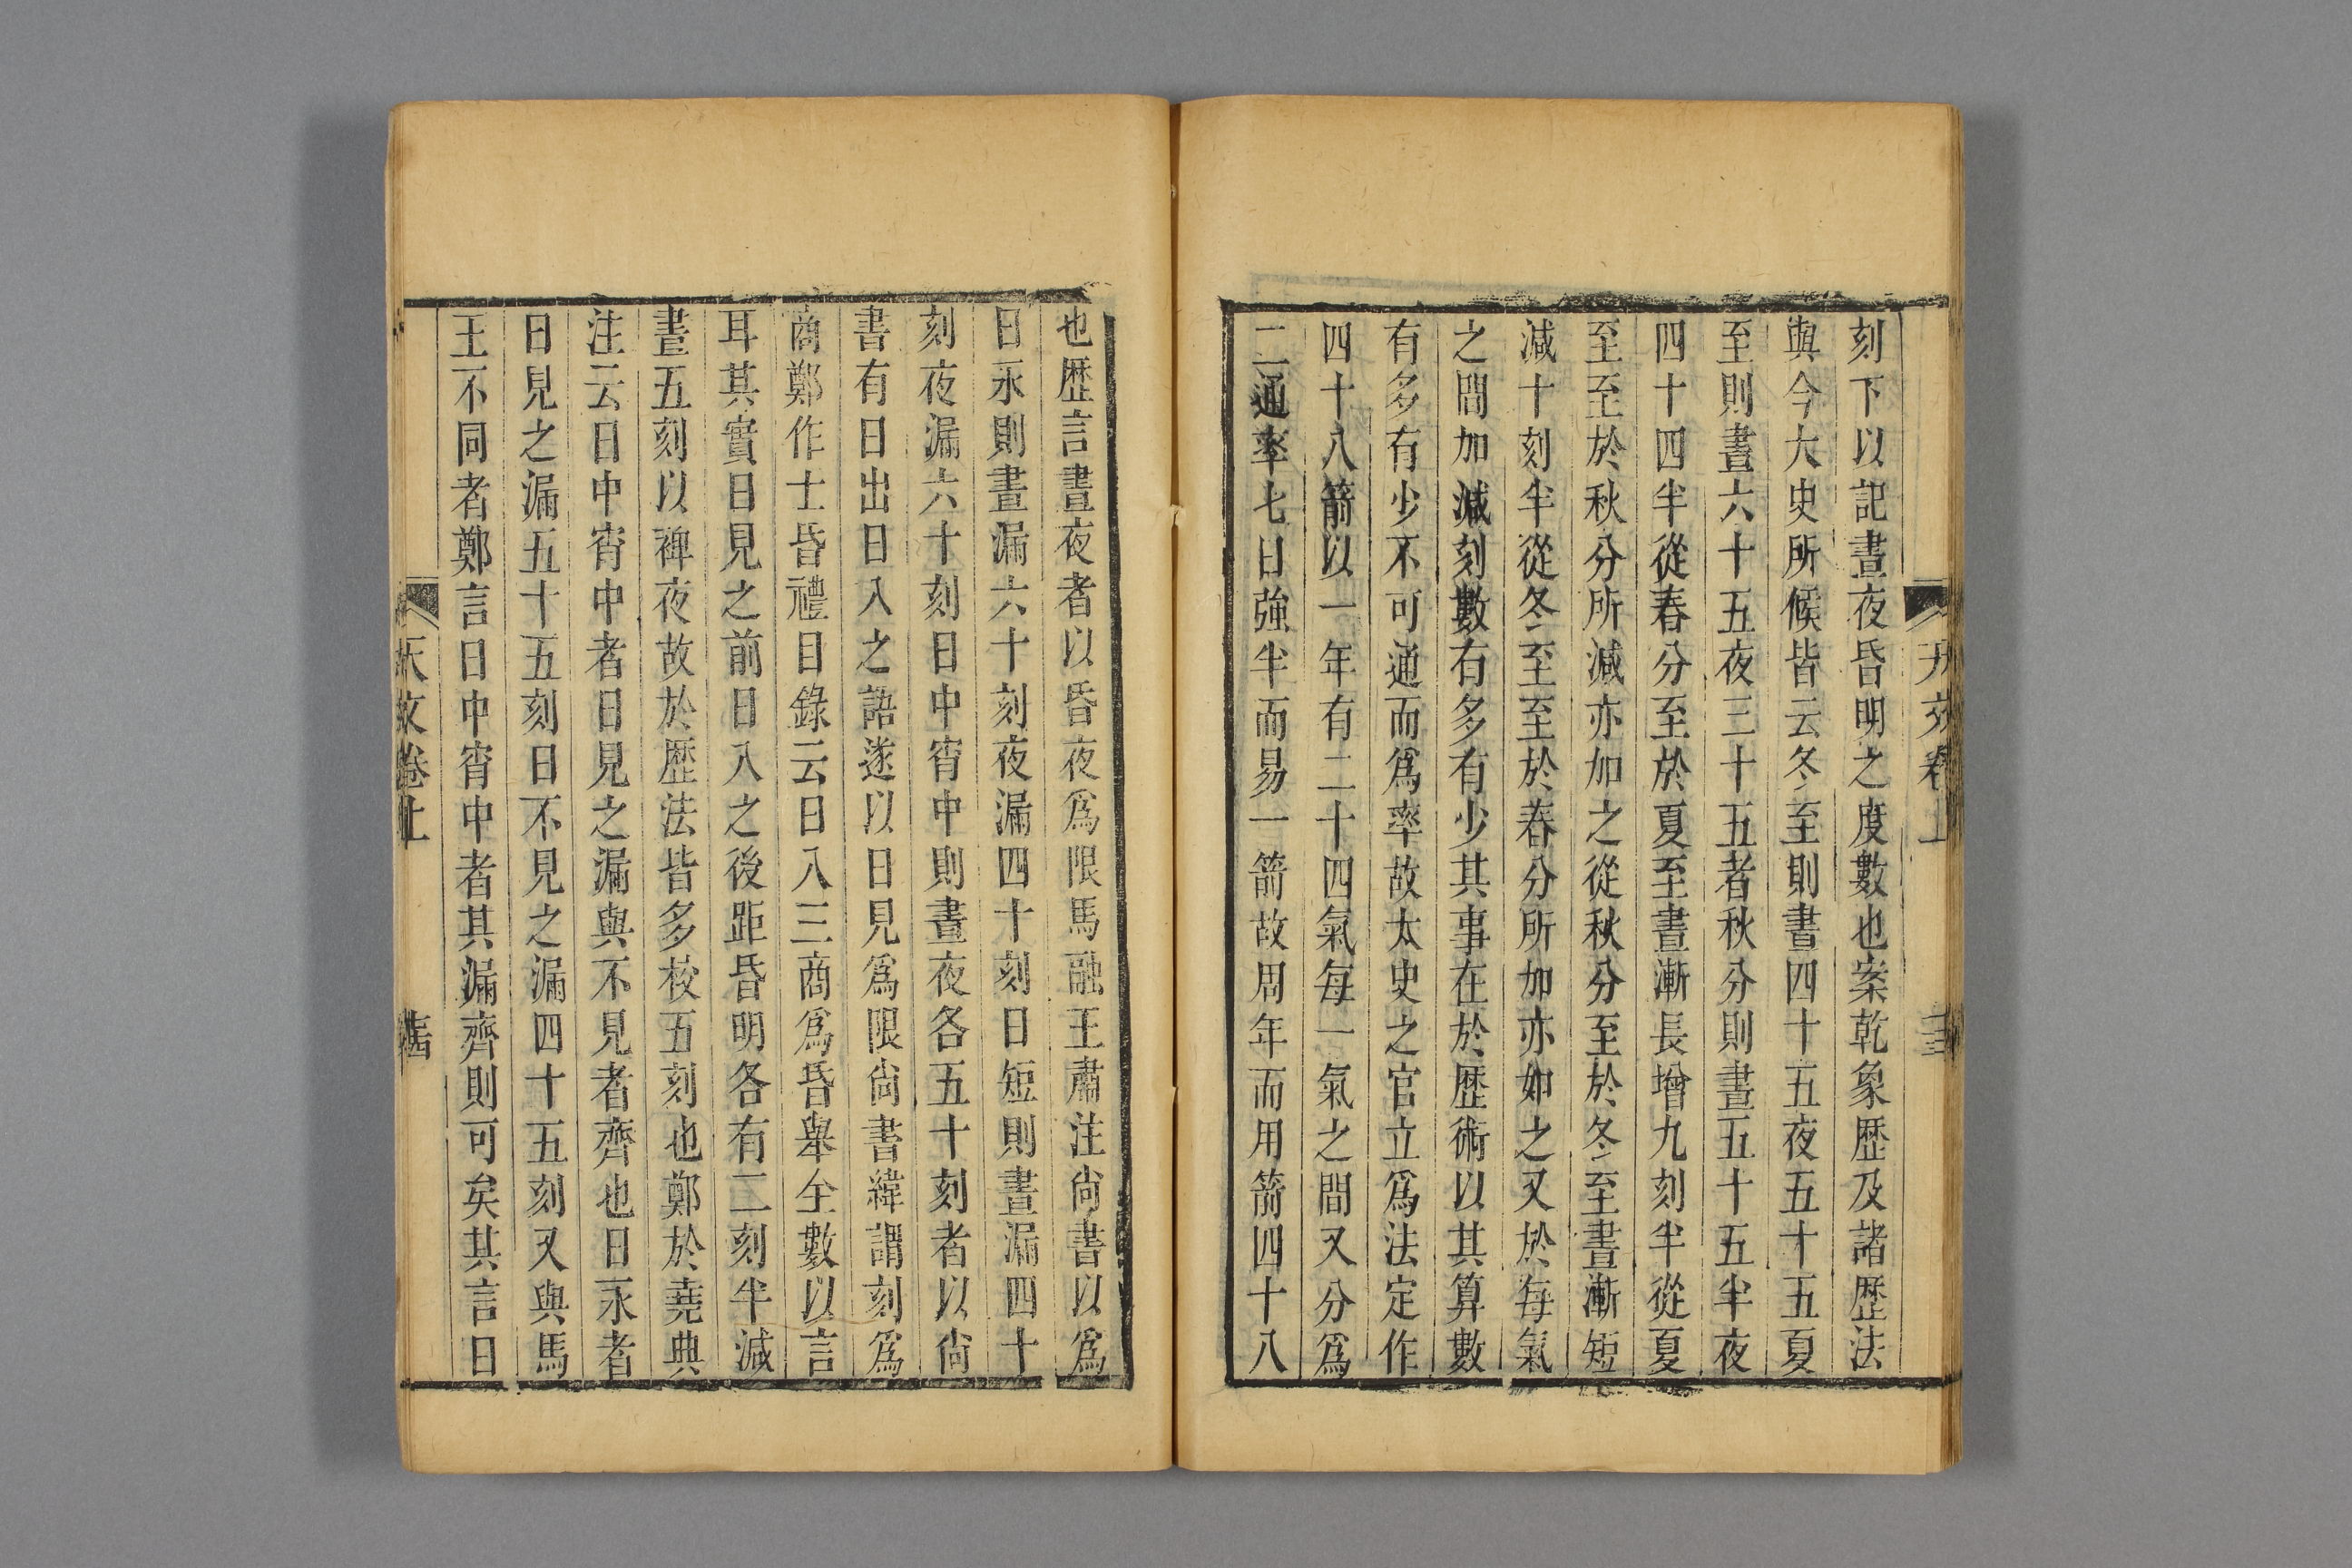 刻下以記晝夜昏明之度數也案乾象歴及諸歴法
與今大史所候皆云冬至則晝四十五夜五十五夏
至則晝六十五夜三十五者秋分則晝五十五半夜
四十四半從春分至於夏至晝漸長增九刻半從夏
至至於秋分所減亦加之從秋分至於冬至晝漸短
減十刻半從冬至至於春分所加亦如之又於每氣
之間加減刻數有多有少其事在於歴術以其算數
有多有少不可通而爲率故太史之官立爲法定作
四十八箭以一年有二十四氣每一氣之間又分爲
二通率七日強半而易一箭故周年而用箭四十八
也歴言晝夜者以昏夜爲限馬融王肅注尙書以爲
日永則晝漏六十刻夜漏四十刻日短則晝漏四十
刻夜漏六十刻日中宵中則晝夜各五十刻者以尙
書有日出日入之語遂以日見爲限尙書緯謂刻爲
商鄭作士昏禮目錄云日入三商爲昏舉全數以言
耳其實日見之前日入之後距昏明各有二刻半減
晝五刻以裨夜故於歴法皆多校五刻也鄭於堯典
注云日中宵中者日見之漏與不見者齊也日永者
日見之漏五十五刻日不見之漏四十五刻又與馬
王不同者鄭言日中宵中者其漏齊則可矣其言日
天文卷上